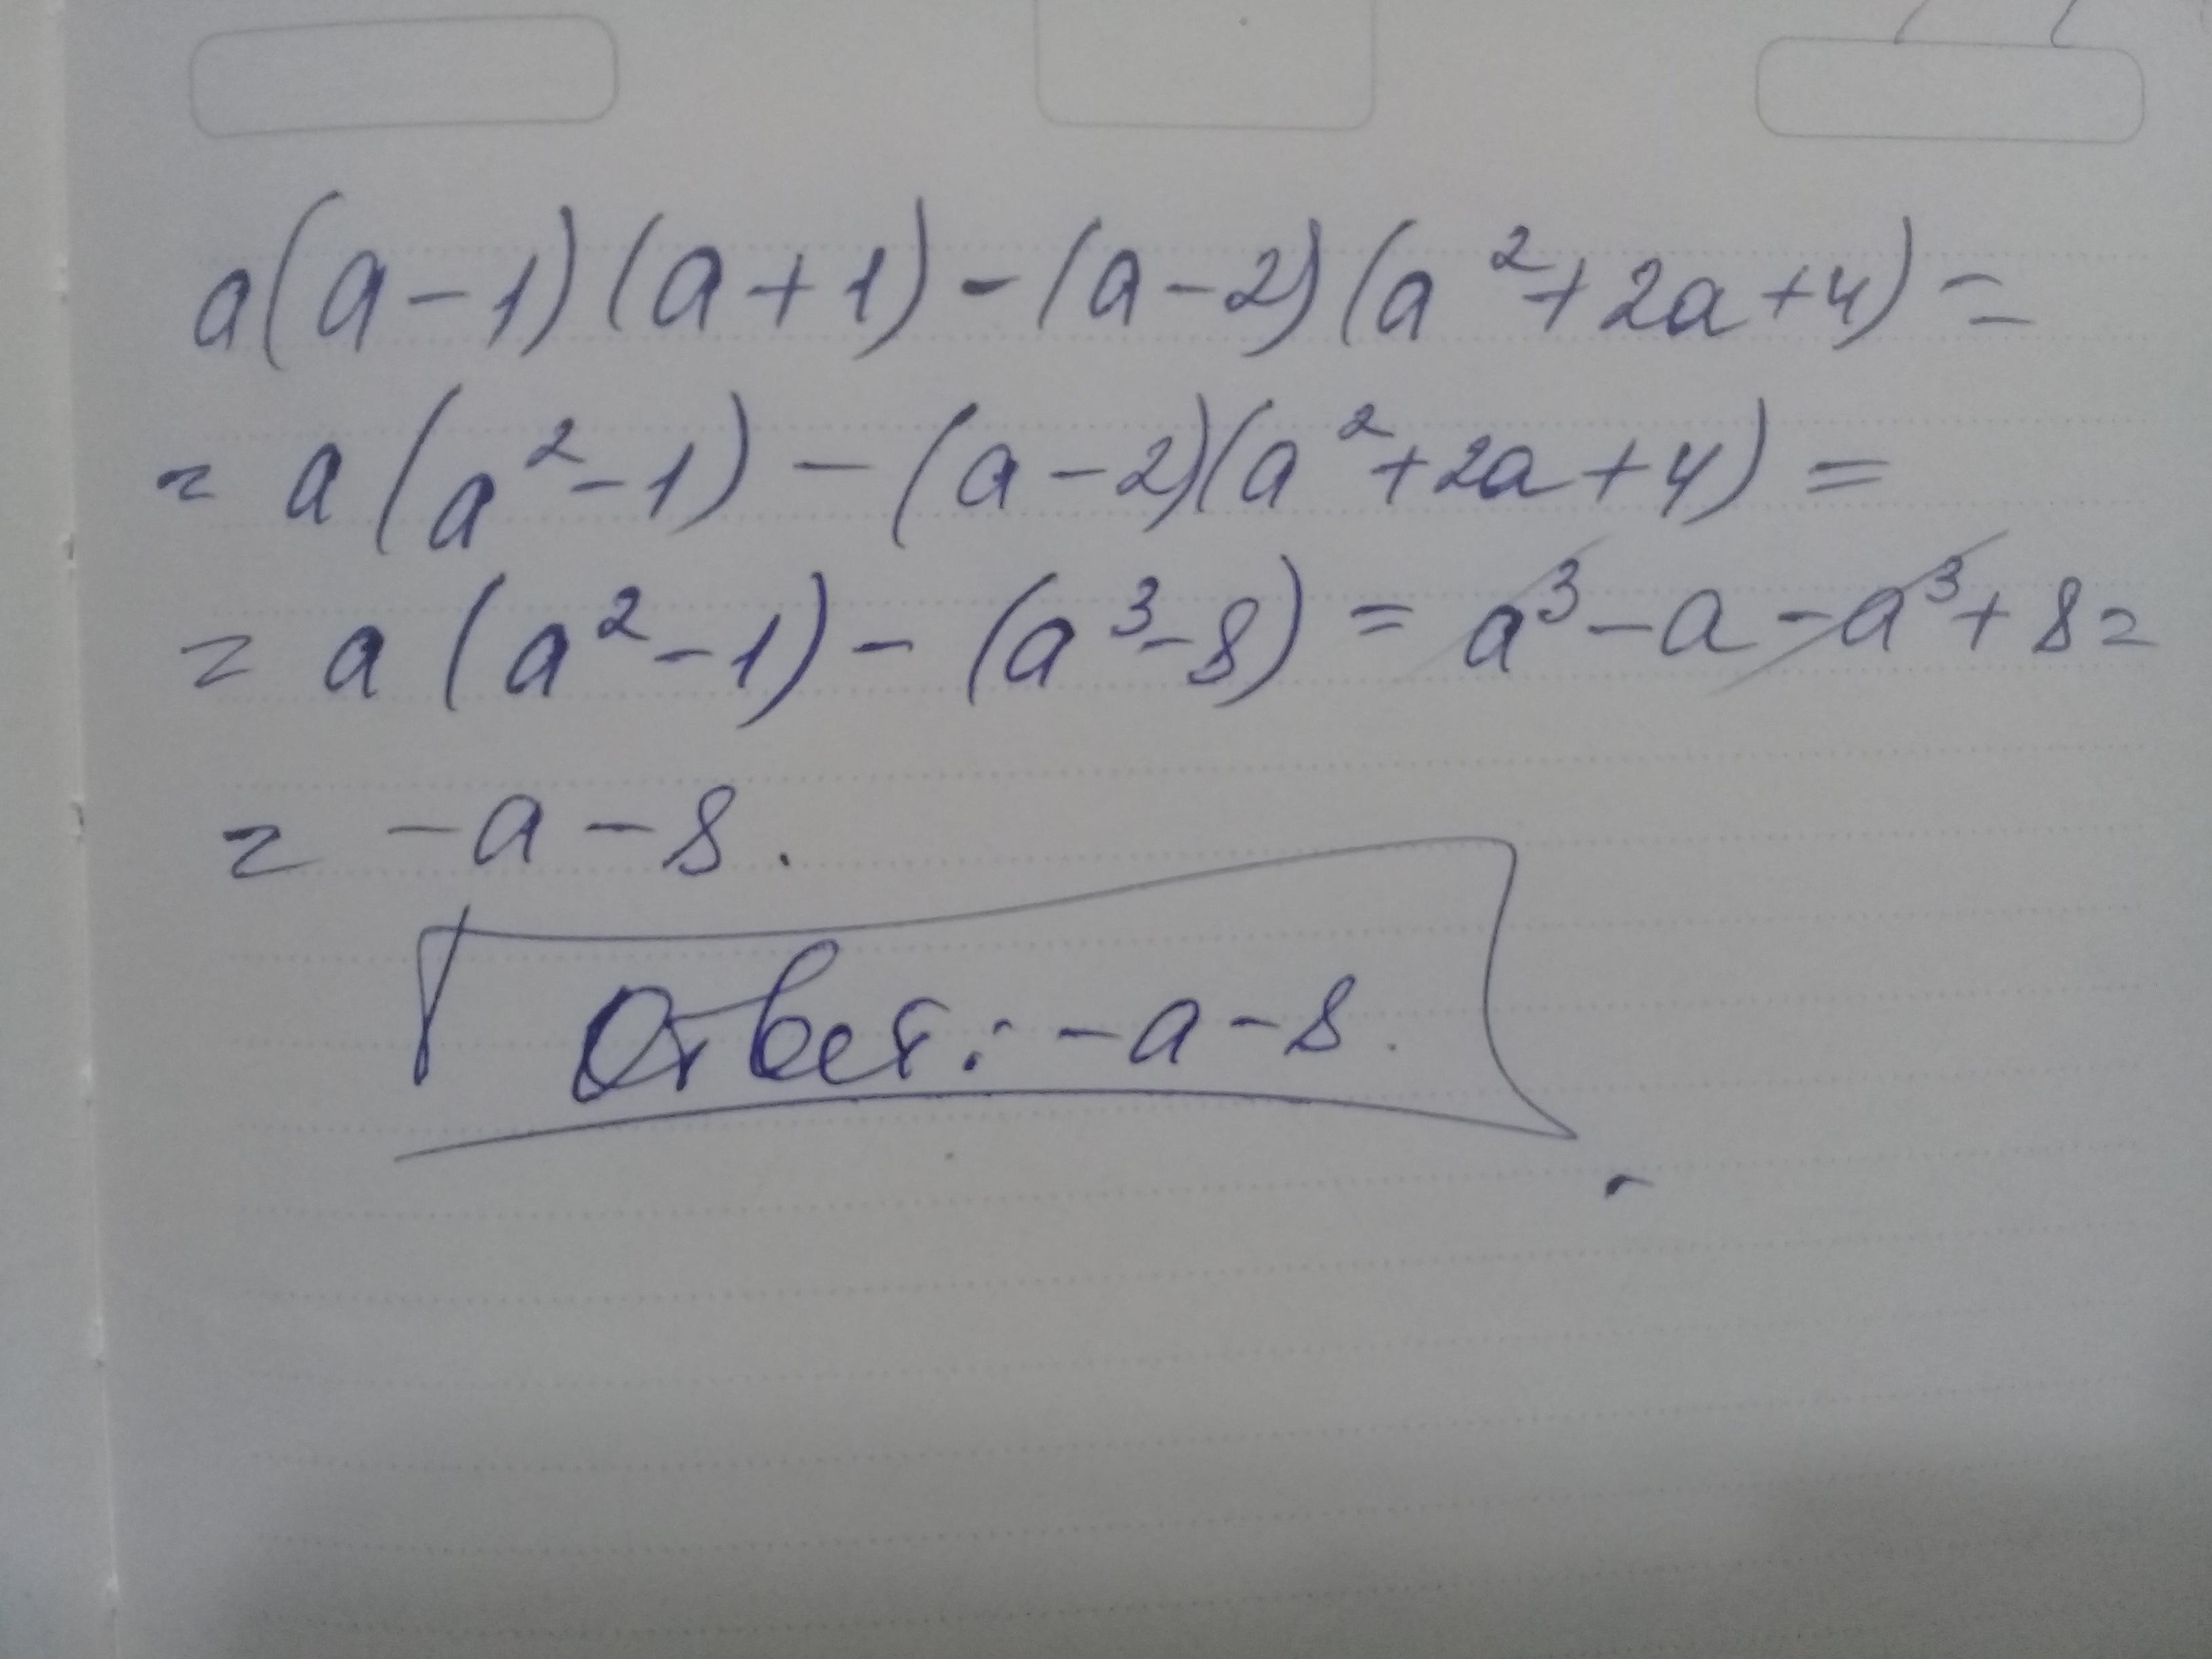 a(a-1)(a+1)-(a-2)(a²+2a+4)=
= a(a²-1)-(a-2)(a²+2a+4)=
= a(a²-1)-(a³-8)= a³-a-a³+8=
= -a-8.
Ответ: -a-8.